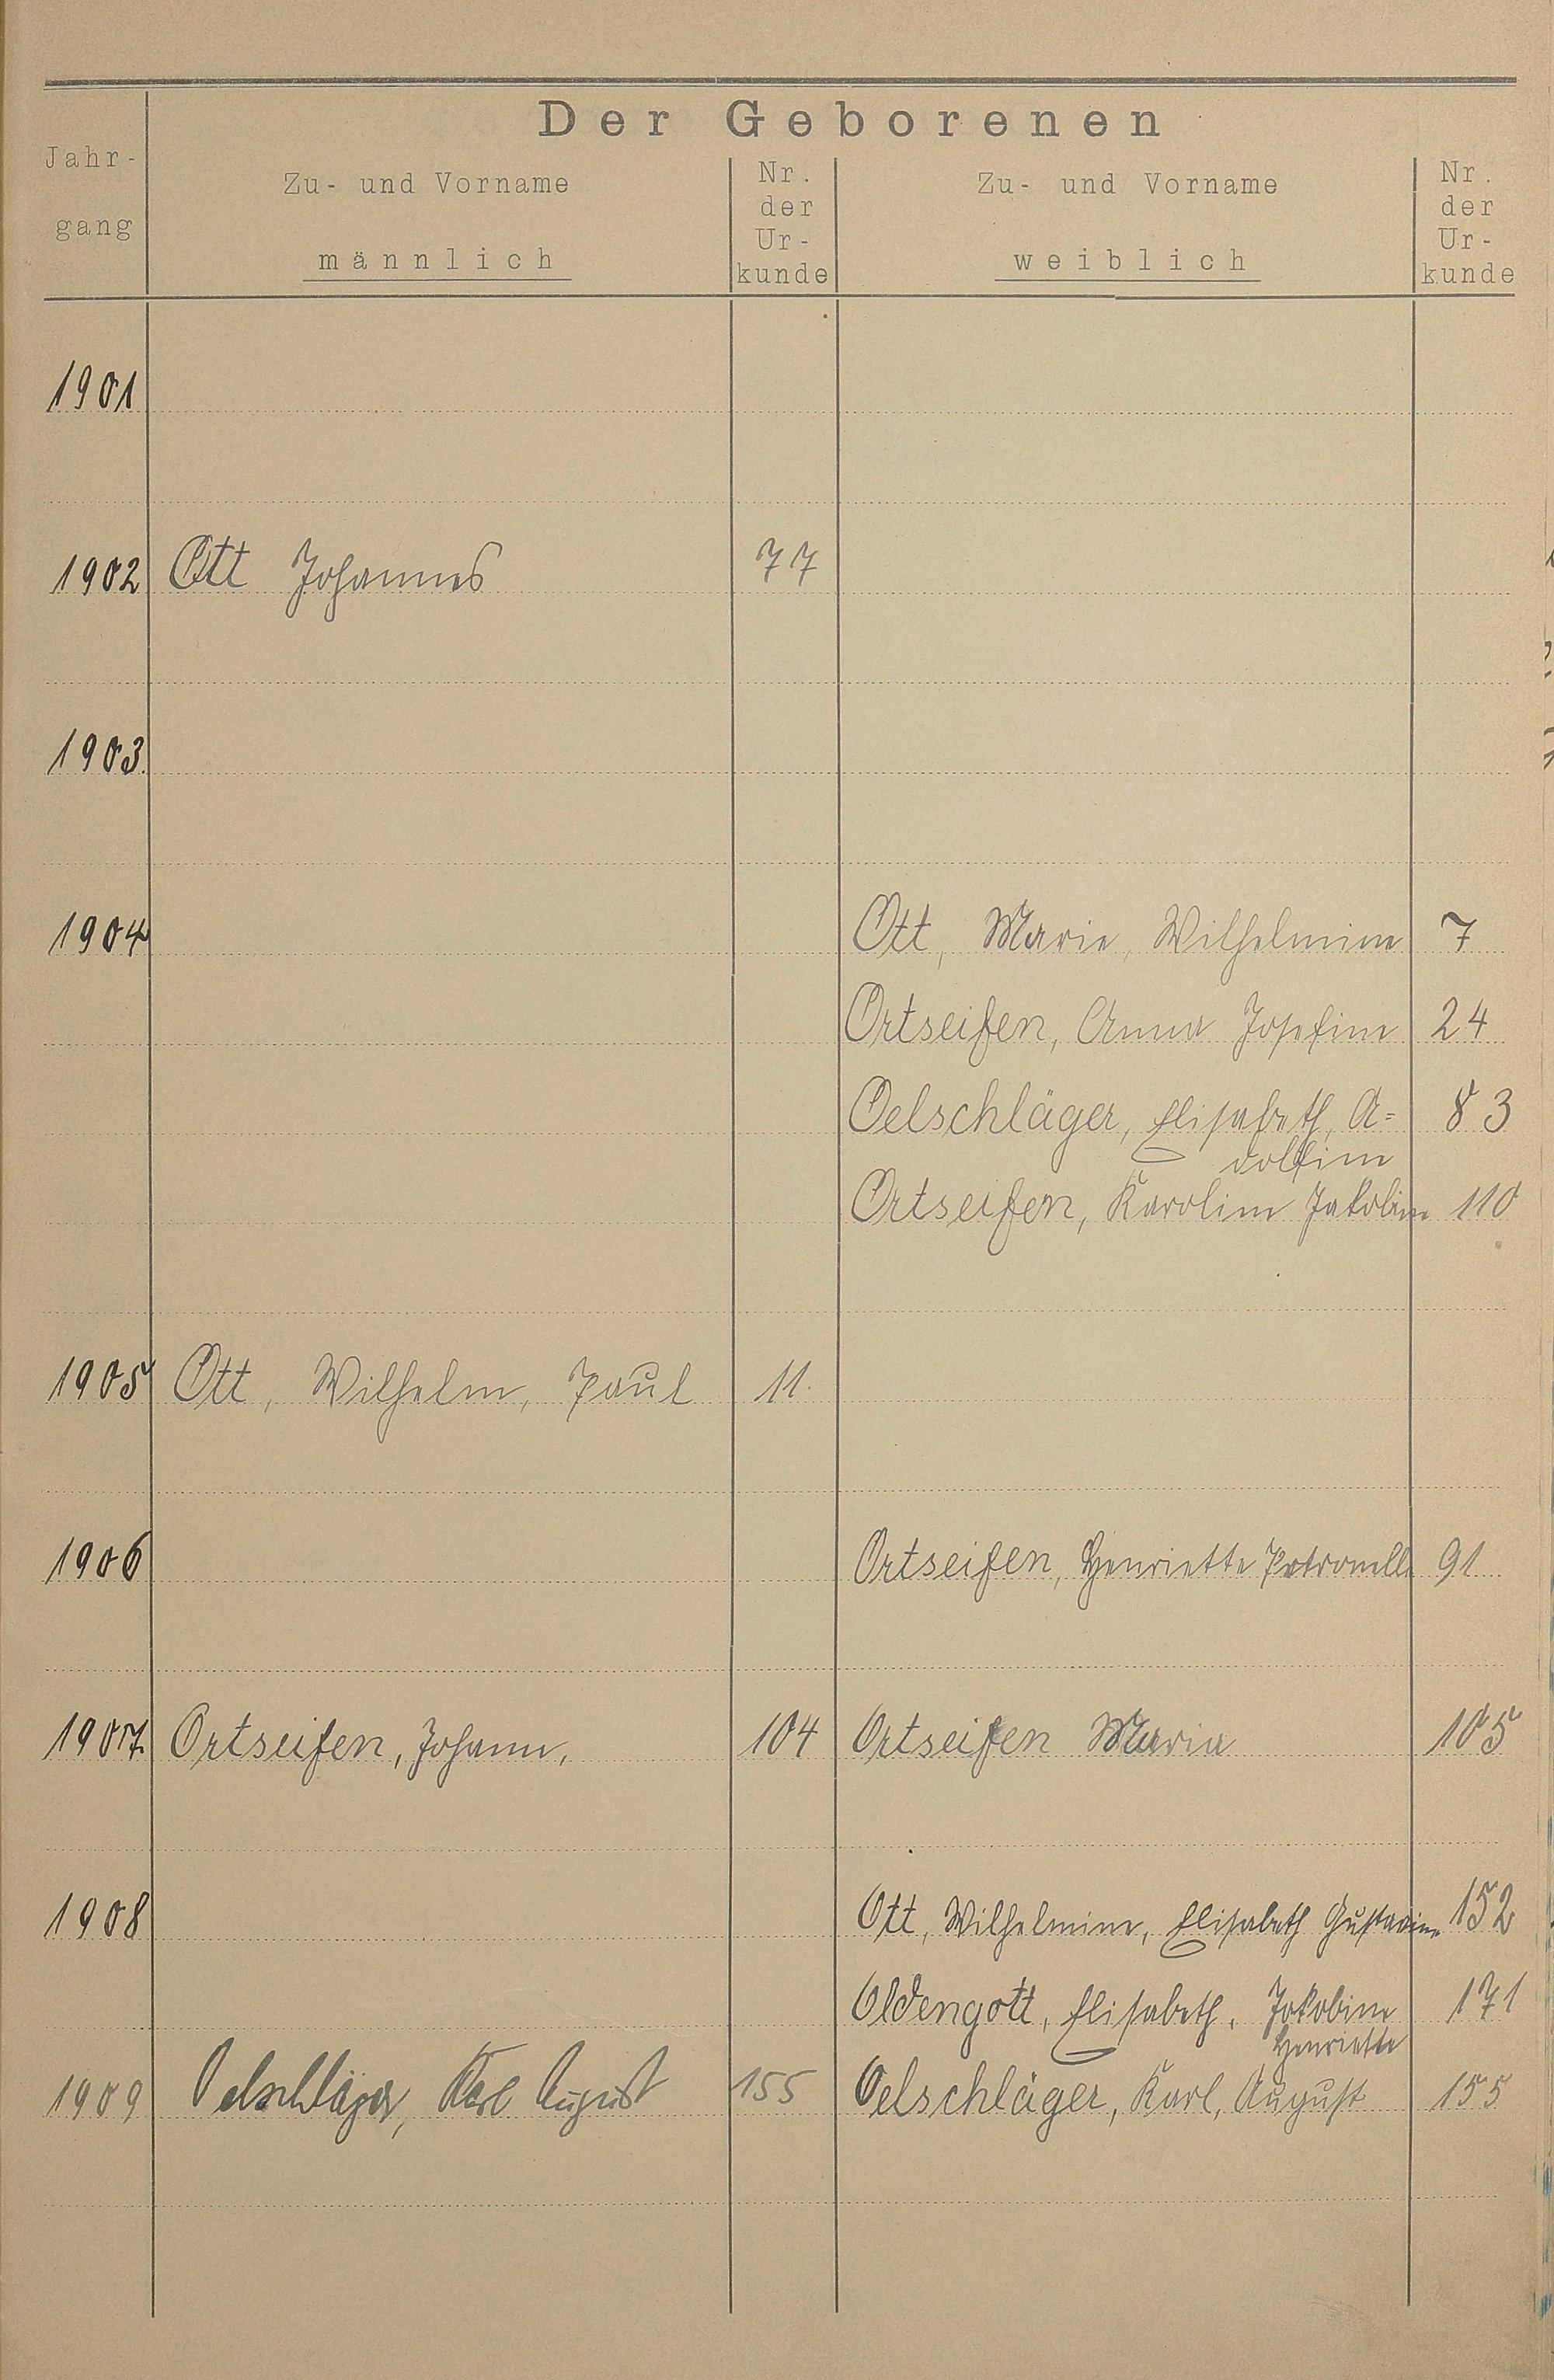 Der Geborenen
Jahr-
gang
Zu- und Vorname
männlich
Nr.
der
Ur-
kunde
Zu- und Vorname
weiblich
Nr.
der
Ur-
kunde
1901
1902 Ott Johannes 77
1903
1904 Ott, Marie, Wilhelmine 7
Ortseifen, Anna Josefine 24
Oelschläger, Elisabeth, A= 83
dolfine
Ortseifen, Karoline Jakobine 110
1905 Ott, Wilhelm, Paul 11.
1906 Ortseifen, Henriette Petronella 91
1907 Ortseifen, Johann, 104 Ortseifen Maria 105
1908 Ott, Wilhelmine, Elisabeth Gustavine 152
Oldengott, Elisabeth, Jakobine 171
Henriette
1909 Oelschläger, Karl August 155 Oelschläger, Karl, August 155